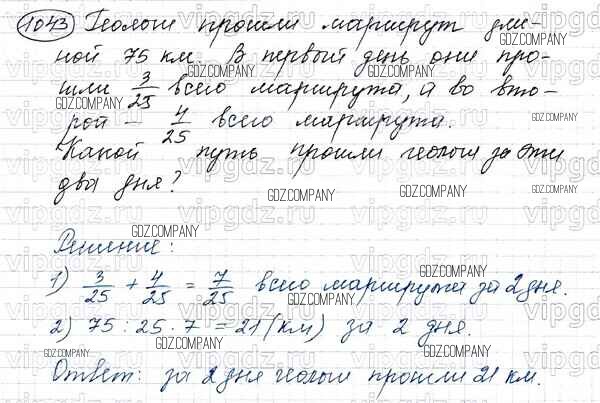 1043 Геологи прошли маршрут дли-
ной 75 км. В первый день они про-
шли 3/25 всего маршрута, а во вто-
рой - 4/25 всего маршрута.
Какой путь прошли геологи за эти
два дня?
Решение:
1) 3/25 + 4/25 = 7/25 всего маршрута за 2 дня.
2) 75 : 25 · 7 = 21 (км) за 2 дня.
Ответ: за 2 дня геологи прошли 21 км.